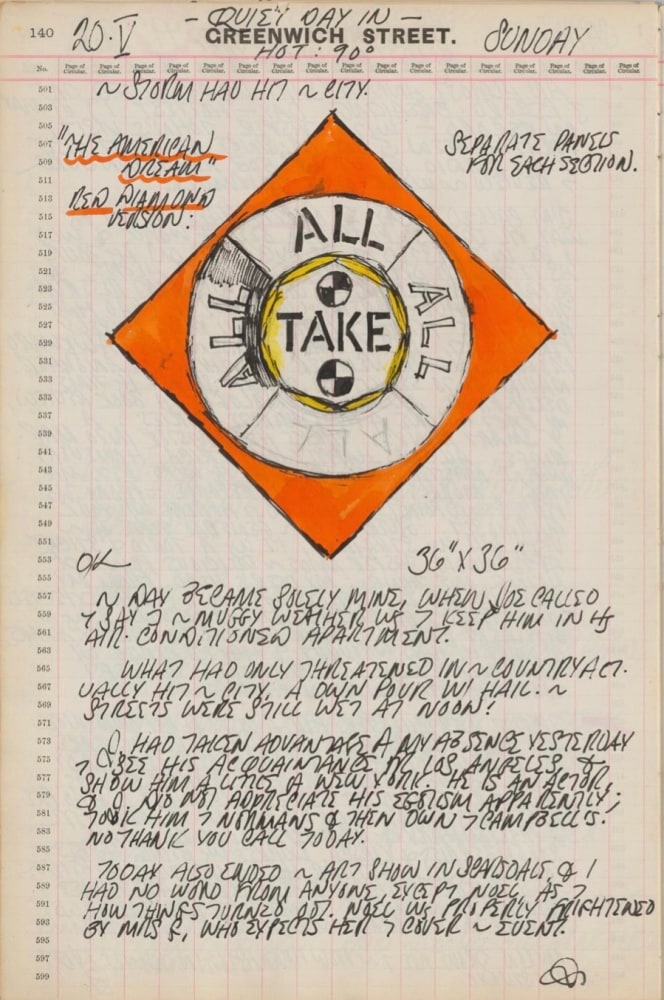 140 20·V - QUIET DAY IN - SUNDAY
GREENWICH STREET.
HOT: 90°
No. Page of Circular. Page of Circular. Page of Circular. Page of Circular. Page of Circular. Page of Circular. Page of Circular. Page of Circular. Page of Circular. Page of Circular. Page of Circular. Page of Circular. Page of Circular. Page of Circular. Page of Circular. Page of Circular. Page of Circular. Page of Circular.
501 ~ STORM HAD HIT ~ CITY.
503
505
507 "THE AMERICAN SEPARATE PANELS
509 DREAM" FOR EACH SECTION.
511
513 RED DIAMOND
515 VERSION:
517 ALL
519
521
523 ALL ALL
525
527 TAKE
529
531
533
535
537
539 ALL
541
543
545
547
549
551
553 OK 36" X 36"
555
557 ~ DAY BECAME SOLELY MINE, WHEN JOE CALLED
559 7 SAY ~ MUGGY WEATHER 7 KEEP HIM IN
561 AIR-CONDITIONED APARTMENT.
563
565 WHAT HAD ONLY THREATENED IN ~ COUNTRY ACT-
567 UALLY HIT ~ CITY, A DOWN POUR W/ HAIL. ~
569 STREETS WERE STILL WET AT NOON!
571
573 HAD TAKEN ADVANTAGE MY ABSENCE YESTERDAY
575 7 SEE HIS ACQUAINTANCE LOS ANGELES, &
577 SHOW HIM A LITTLE NEW YORK. HE IS AN ACTOR,
579 & DID NOT APPRECIATE HIS EGOTISM APPARENTLY;
581 TOOK HIM 7 NORMANS & THEN DOWN 7 CAMPBELL'S.
583 NO THANK YOU CALL TODAY.
585
587 TODAY ALSO ENDED ~ ART SHOW IN SCARSDALE, & I
589 HAD NO WORD FROM ANYONE, EXCEPT NOEL, AS 7
591 HOW THINGS TURNED OUT. NOEL PROPERLY FRIGHTENED
593 BY MRS , WHO EXPECTS HER 7 COVER ~ EVENT.
595
597
599